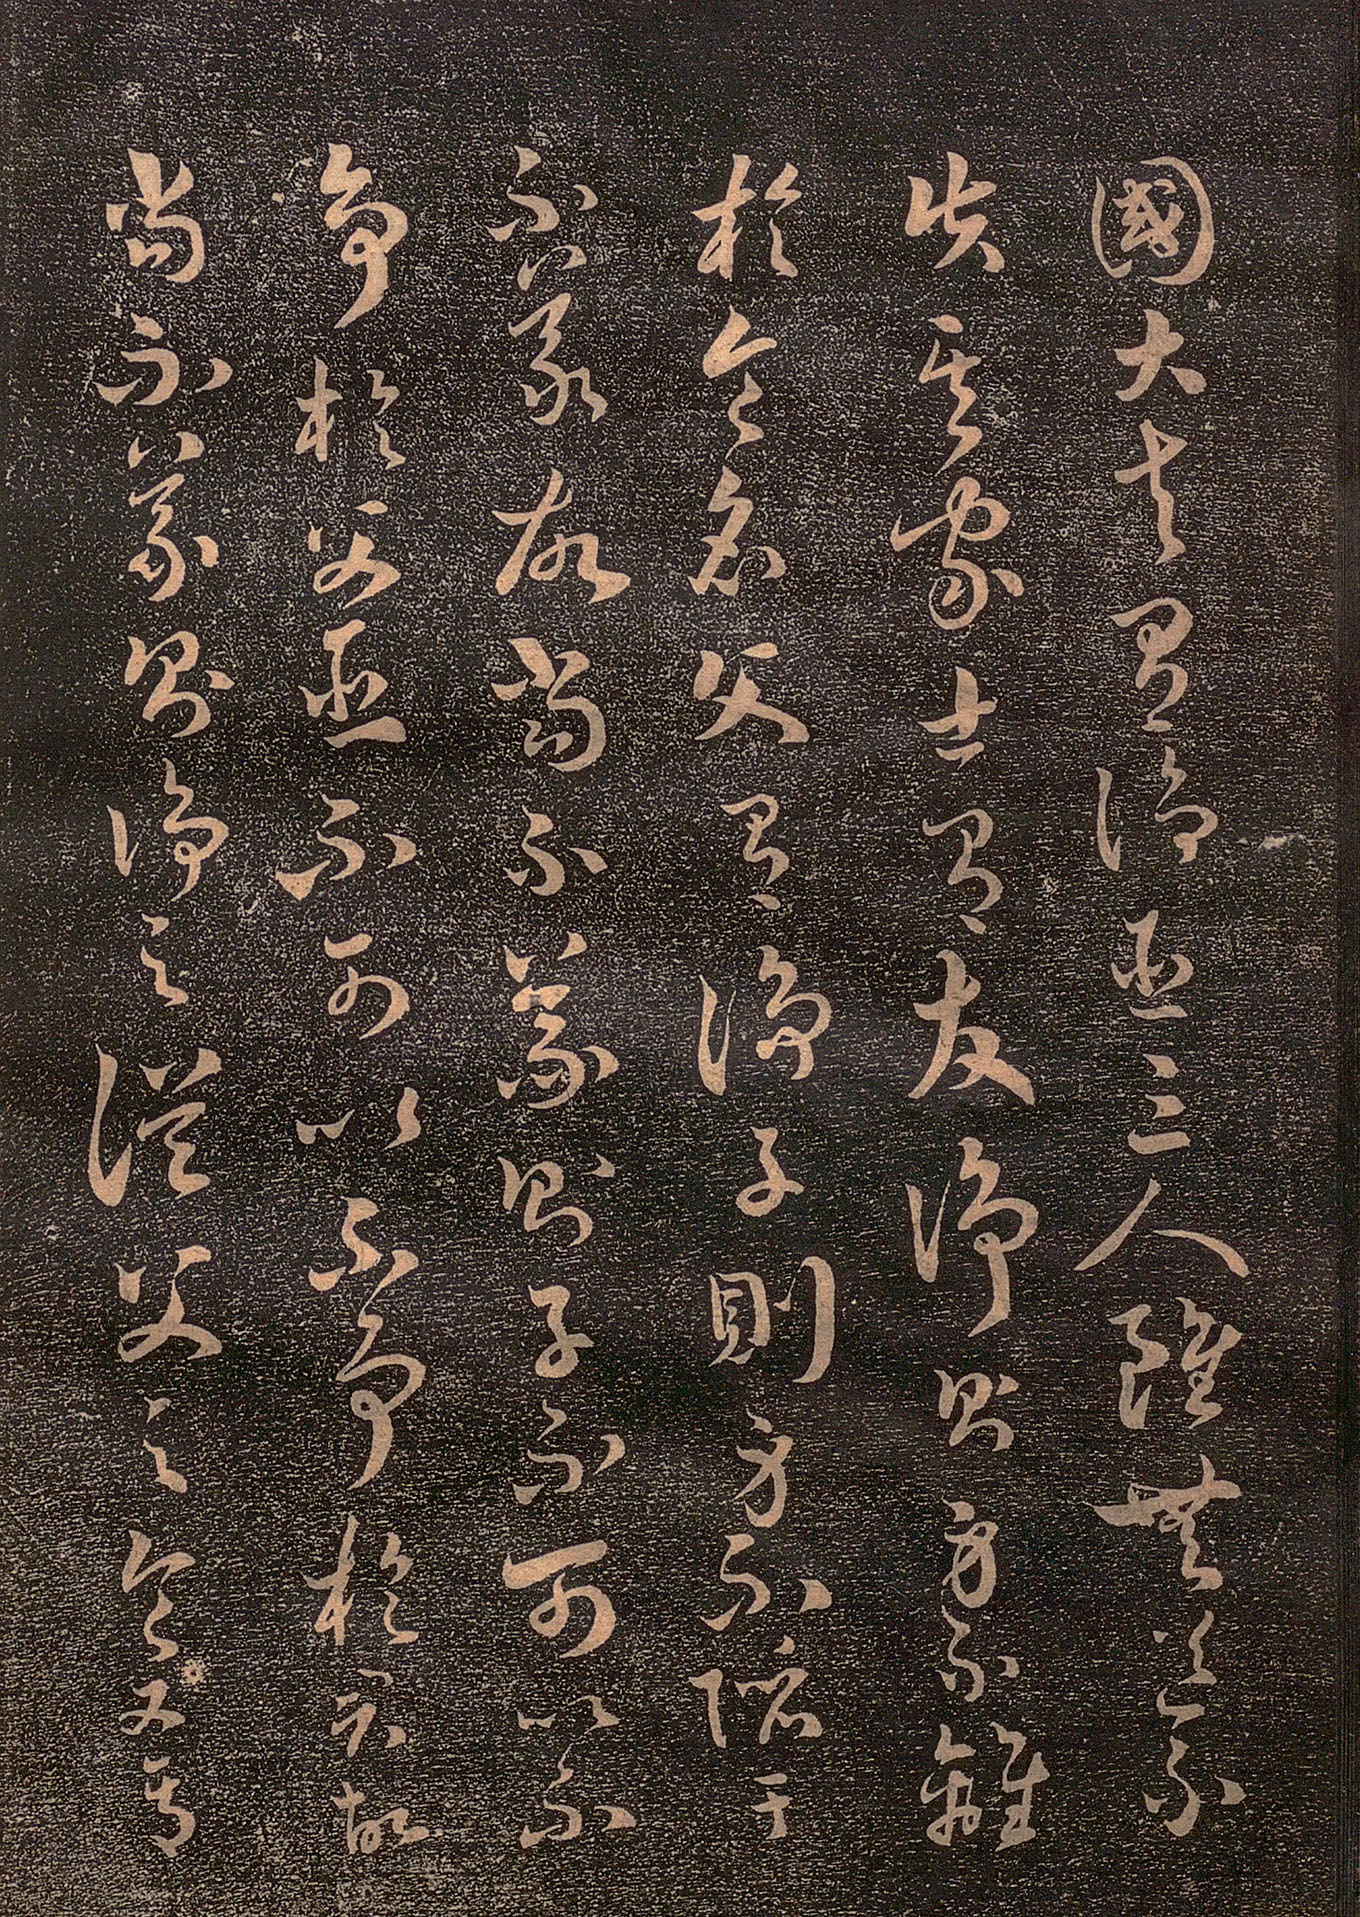 國大夫有諍臣三人雖無道不
失其家士有友諍則身不離
於令名父有諍子則身不陷于
不義故當不義則子不可以不
爭於父臣不可以不爭於君故
當不義則諍之從父之令又焉